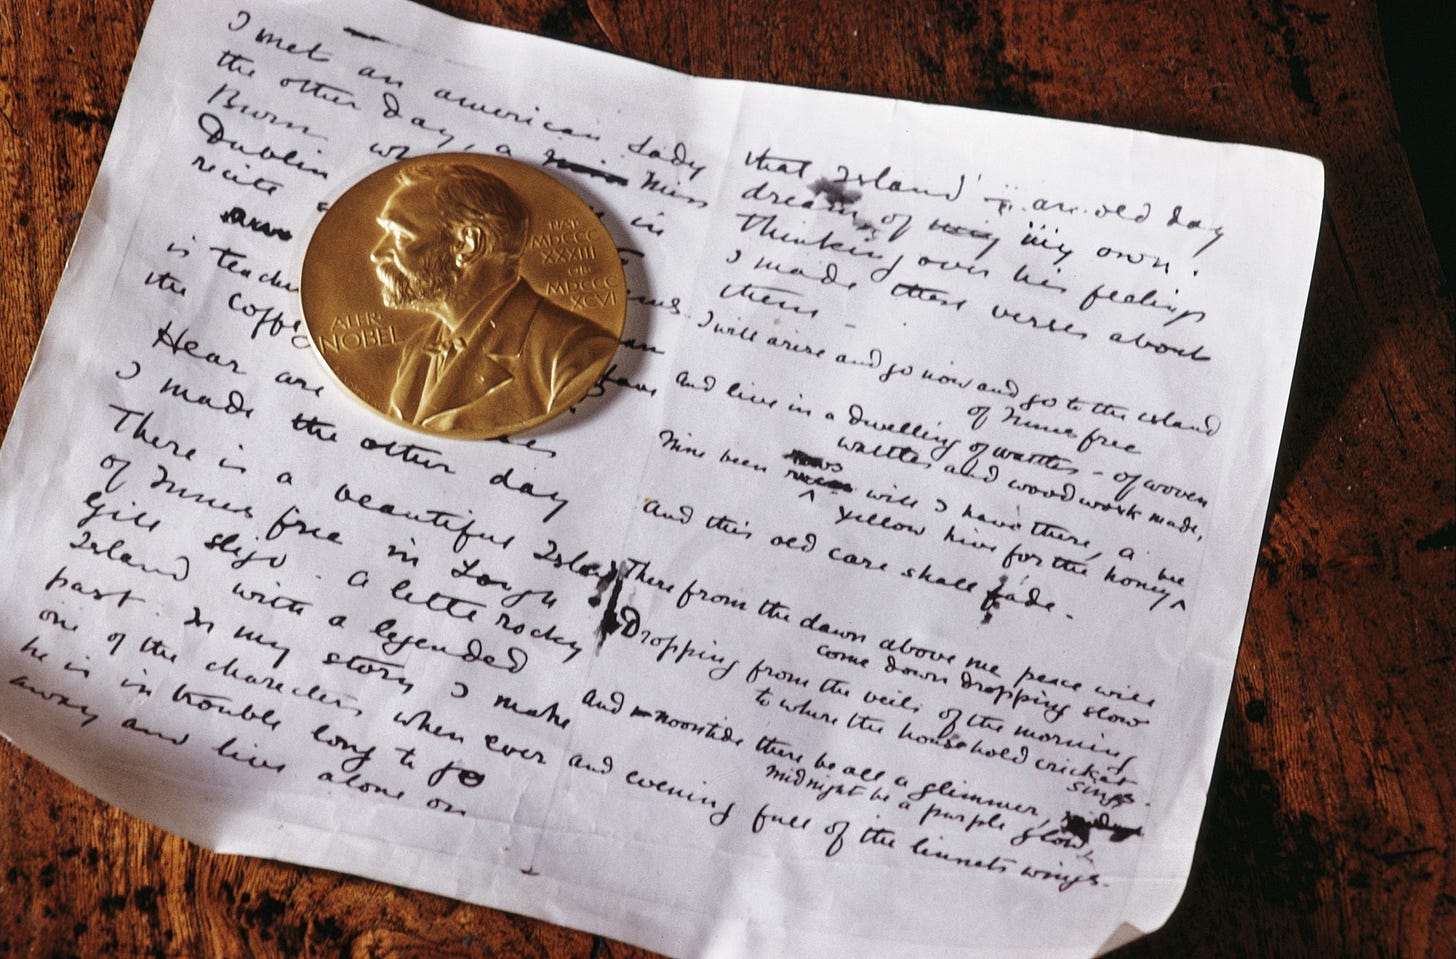 I met an american Lady
the other day, a Miss
Burn
Dublin in
recite
is teach
the coffe
Hear are
I made the other day
There is a beautiful Island
of Innis free in Lough
Gill Sligo. A little rocky
Island with a legended
past. In my story I make
one of the characters when ever
he is in trouble long to go
away and live alone on
that Island – an old day
dream of my own.
Thinking over his feelings
I made these verses about
them –
I will arise and go now and go to the island
of Innis free
And live in a dwelling of wattles – of woven
wattles and wood work made,
Nine been rows will I have there, a
yellow hive for the honey bee
And this old care shall fade.
There from the dawn above me peace will
come down dropping slow
Dropping from the veils of the morning
to where the household cricket
sings.
And noontide there be all a glimmer,
midnight be a purple glow
and evening full of the linnets wings.
NAT
MDCCC
XXXIII
OB
MDCCC
XCVI
ALFR
NOBEL